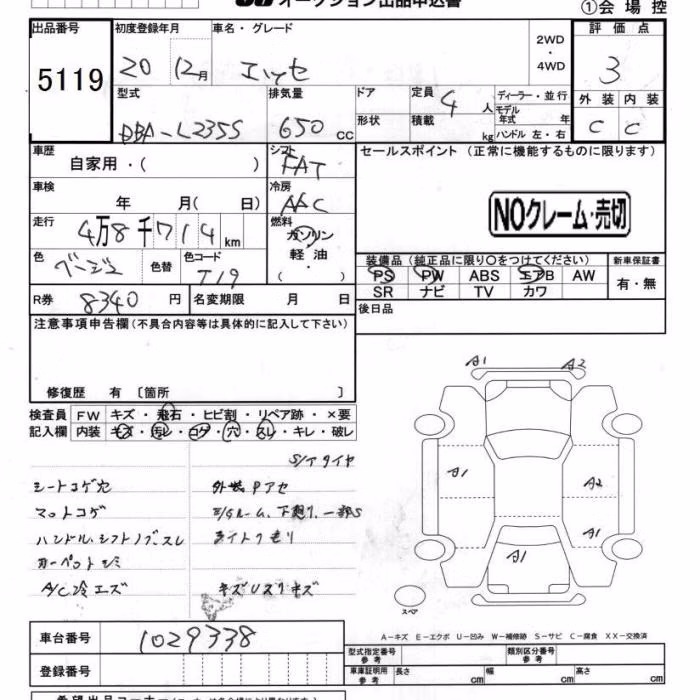 オークション出品申込書
①会場控
出品番号 初度登録年月 車名・グレード 2WD・4WD 評価点
5119 20 12月 エッセ 3
型式 排気量 ドア 定員 4 人 ディーラー・並行 外装 内装
DBA-L235S 650 cc 形状 積載 kg モデル年式 年 ハンドル 左・右 C C
車歴 自家用・( ) シフト FAT セールスポイント (正常に機能するものに限ります)
車検 年 月( 日) 冷房 AAC
NOクレーム・売切
走行 4万8千714km 燃料 ガソリン 軽油 ・( )
色 ベージュ 色替 色コード T19
装備品 (純正品に限り○をつけてください) 新車保証書
PS PW ABS エアB AW 有・無
SR ナビ TV カワ
R券 8340 円 名変期限 月 日
後日品
注意事項申告欄(不具合内容等は具体的に記入して下さい)
修復歴 有 〔箇所 〕
検査員 FW キズ・飛石・ヒビ割・リペア跡・×要
記入欄 内装 キズ・汚レ・コゲ・穴・スレ・キレ・破レ
S/Tタイヤ
シートコゲ穴 外装Pアセ
マットコゲ
ハンドル、シフトノブスレ ライトクモリ
カーペットシミ
A/C冷エズ キズUスリキズ
A1 A2
A1 A2
A1
A1
スペア
A-キズ E-エクボ U-凹み W-補修跡 S-サビ C-腐食 XX-交換済
車台番号 1029338
型式指定番号 参考 類別区分番号 参考
登録番号 車庫証明用 参考 長さ cm 幅 cm 高さ cm